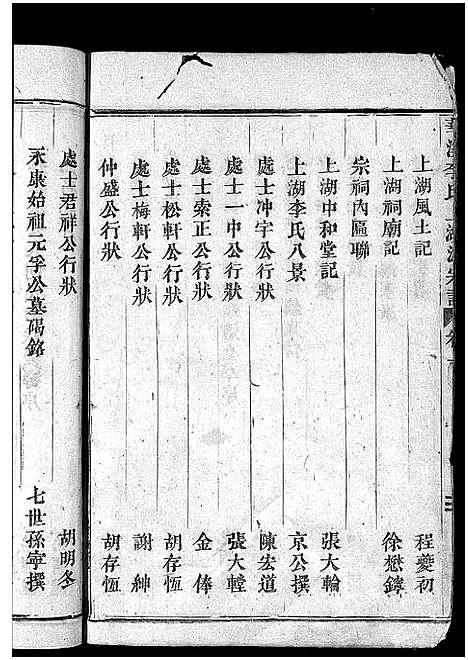 上湖風土記 程夔初
上湖祠廟記 徐懋鑄
宗祠內匾聯
上湖中和堂記 張大輪
上湖李氏八景 京公撰
處士冲宇公行狀 陳宏道
處士一中公行狀 張大𨎋
處士索正公行狀 金俸
處士松軒公行狀 胡存恆
處士梅軒公行狀 謝紳
仲盛公行狀 胡存恆
處士君祥公行狀 胡明冬
永康始祖元孚公墓碣銘 七世孫寧撰